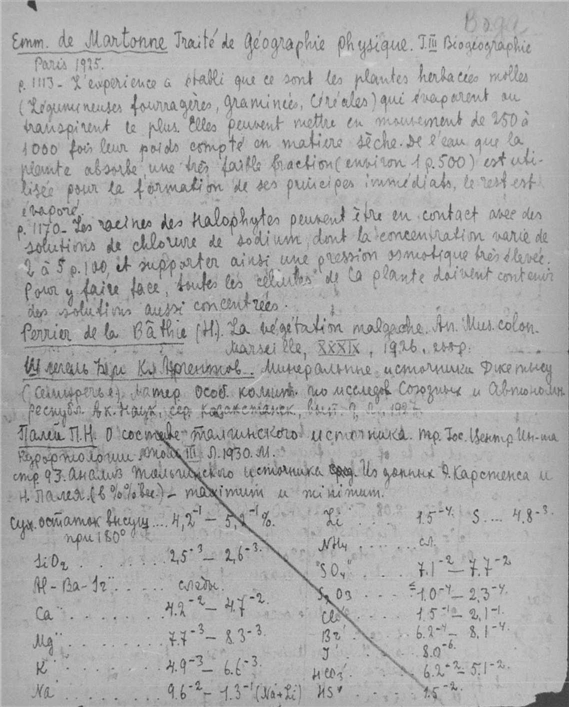 Вода
Emm. de Martonne Traité de Géographie physique. T.III Biogéographie
Paris 1925.
p. 1113 - L'expérience a établi que ce sont les plantes herbacées molles
(Légumineuses fourragères, graminées, Céréales) qui évaporent ou
transpirent le plus. Elles peuvent mettre en mouvement de 250 à
1000 fois leur poids compté en matière sèche. De l'eau que la
plante absorbe, une très faible fraction (environ 1 p. 500) est uti-
lisée pour la formation de ses principes immédiats, le rest est
évaporé
p. 1170 - Les racines des Halophytes peuvent être en contact avec des
solutions de chlorure de sodium, dont la concentration varie de
2 à 5 p. 100, et supporter ainsi une pression osmotique très élevée.
Pour y faire face, toutes les cellules de la plante doivent contenir
des solutions aussi concentrées.
Perrier de la Bâthie (H). La végétation malgache. An. Mus. colon.
Marseille, XXXIX, 1926,
Минеральные источники Джетысу
(Семиречье). Матер. Особ. комит. по исслед. Союзных и Автономн.
республ. Ак. Наук, сер. казакстанск, 1927.
Палей П.Н. О составе талгинского источника. Тр. Гос. Центр. Ин-та
Курортологии III. Л. 1930. М.
стр 93. Анализ Талгинского источника Из данных Э. Карстенса и
Н. Палея. (в % % вес) - maximum и minimum.
сух. остаток высуш ... 4,2⁻¹ - % Li 1.5⁻⁴. S .... 4,8⁻³.
при 180° NH₄ сл.
SiO₂ 2,5⁻³ - 2,6⁻³. "SO₄" 7.1⁻² - 7.7⁻²
Al - Ba - Sr следы. S₂O₃ 1.0⁻⁴ - 2.3⁻⁴.
Ca 4.2⁻² - 4.7⁻². Cl 1.5⁻¹ - 2,1⁻¹.
Mg 7.7⁻³ - 8.3⁻³. Br 6.2⁻⁴ - 8,1⁻⁴.
J 8.0⁻⁶.
K 4.9⁻³ - 6.6⁻³. HCO₃ 6.2⁻² - 5.1⁻².
Na 9.6⁻² - 1.3⁻¹ (Na+Li) HS' 1.5⁻².